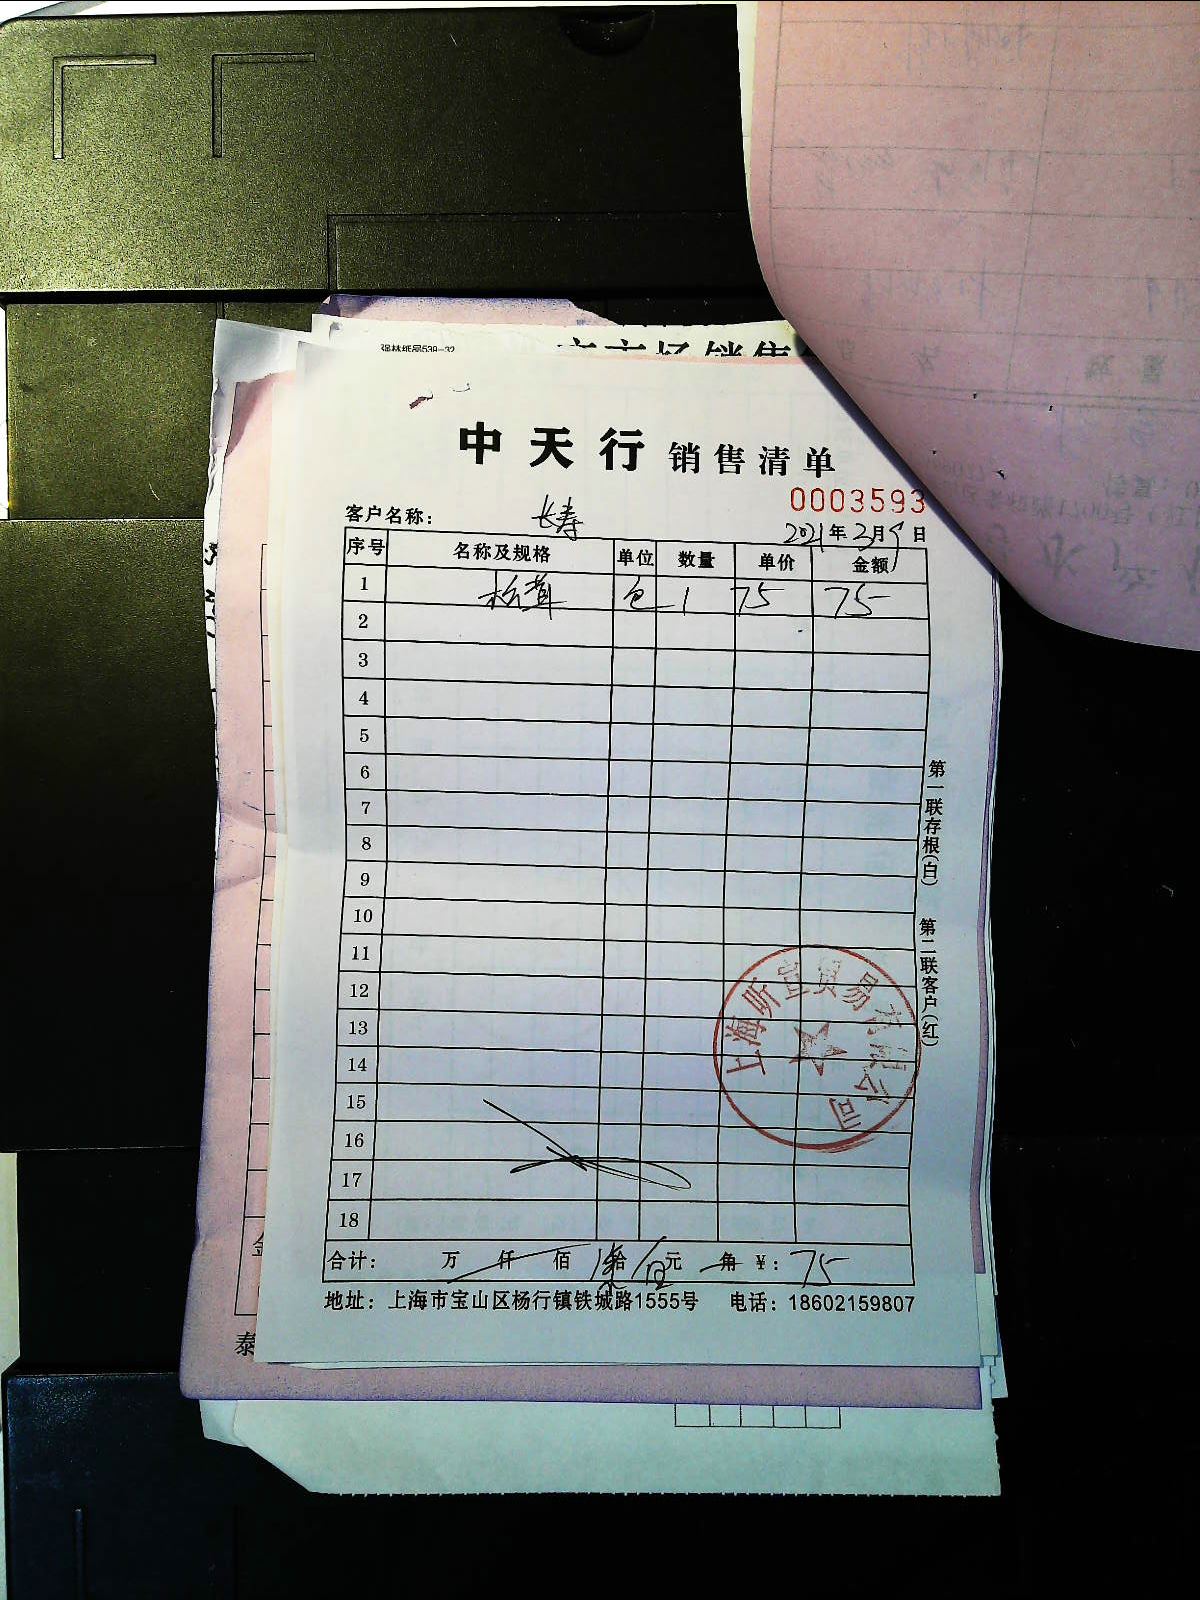 强林纸品539-32
中天行 销售清单
0003593
客户名称： 长寿
2021年3月9日
序号 名称及规格 单位 数量 单价 金额
1 松茸 包 1 75 75
2
3
4
5
6
7
8
9
10
11
12
13
14
15
16
17
18
上海昕宣贸易有限公司
合计： 万 仟 佰 拾 元 角 ￥：75
地址：上海市宝山区杨行镇铁城路1555号 电话：18602159807
第一联存根(白) 第二联客户(红)
泰